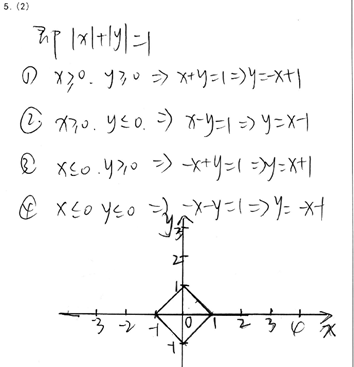 5. (2)
即 |x|+|y|=1
① x≥0. y≥0 => x+y=1 => y=-x+1
② x≥0. y≤0. => x-y=1 => y=x-1
③ x≤0. y≥0 => -x+y=1 => y=x+1
④ x≤0 y≤0 => -x-y=1 => y=-x-1
y
3
2
1
-3 -2 -1 0 1 2 3 4 x
-1